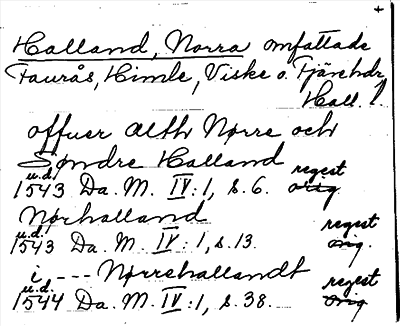 +
Halland, Norra omfattade
Faurås, Himle, Viske o. Fjäre hdr,
Hall. l.
offuer alth Nørre och
Søndre Halland
u.d.
1543 Da. M. IV:1, s. 6. regest orig.
Nørhalland
u.d.
1543 Da. M. IV:1, s. 13. regest orig.
i --- Nørrehallandt
u.d.
1544 Da. M. IV:1, s. 38. regest orig